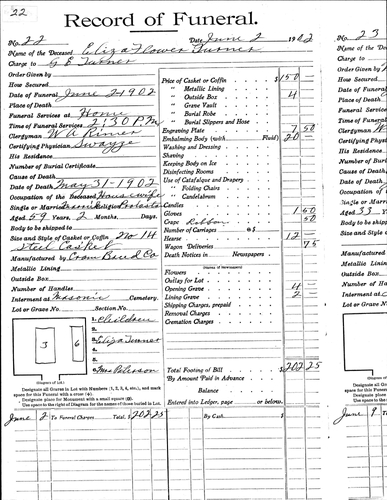 22
Record of Funeral.
No. 22 Date June 2 1902
Name of the Deceased Eliza Flower Turner
Charge to G E Turner
Order Given by
How Secured
Date of Funeral June 2 1902
Place of Death
Funeral Services at Home
Time of Funeral Services 2:30 P.M.
Clergyman W A
Certifying Physician Swayze
His Residence
Number of Burial Certificate
Cause of Death
Date of Death May 31-1902
Occupation of the Deceased Housewife
Single or Married Religion
Aged 59 Years, 2 Months, Days.
Body to be shipped to
Size and Style of Casket or Coffin No 14
Steel Casket
Manufactured by Crom Co
Metallic Lining
Outside Box
Number of Handles
Interment at Masonic Cemetery.
Lot or Grave No. Section No.
Price of Casket or Coffin $150 —
" Metallic Lining
" Outside Box 4
" Grave Vault
" Burial Robe
" Burial Slippers and Hose
Engraving Plate 7 50
Embalming Body (with Fluid) 20 —
Washing and Dressing
Shaving
Keeping Body on Ice
Disinfecting Rooms
Use of Catafalque and Drapery
" Folding Chairs
" Candelabrum
Candles
Gloves 1 50
Crape Ribbon 50
Number of Carriages @ $
Hearse 12
Wagon Deliveries 75
Death Notices in Newspapers
Flowers
Outlay for Lot
Opening Grave 4
Lining Grave 2
Shipping Charges, prepaid
Removal Charges
Cremation Charges
Total Footing of Bill $202 25
By Amount Paid in Advance
Balance
Entered into Ledger, page or below.
3
6
1. Children
Eliza Turner
6. Mrs
(Diagram of Lot.)
Designate all Graves in Lot with Numbers (1, 2, 3, 4, etc.), and mark
space for this Funeral with a cross
Designate place for Monument with a small square
Use space to the right of Diagram for the names of those buried in Lot.
June 2 To Funeral Charges Total, $202.25 By Cash $
23
No. 23
Name of the
Charge to
Order Given
How Secured
Date of Funeral
Place of Death
Funeral
Time of Funeral
Clergyman
Certifying Physician
His Residence
Number of Burial
Cause of Death
Date of Death
Occupation
Single or Married
Aged 33
Body to be shipped
Size and Style
Manufactured
Metallic Lining
Outside Box
Number of
Interment at
Lot or Grave
June 9